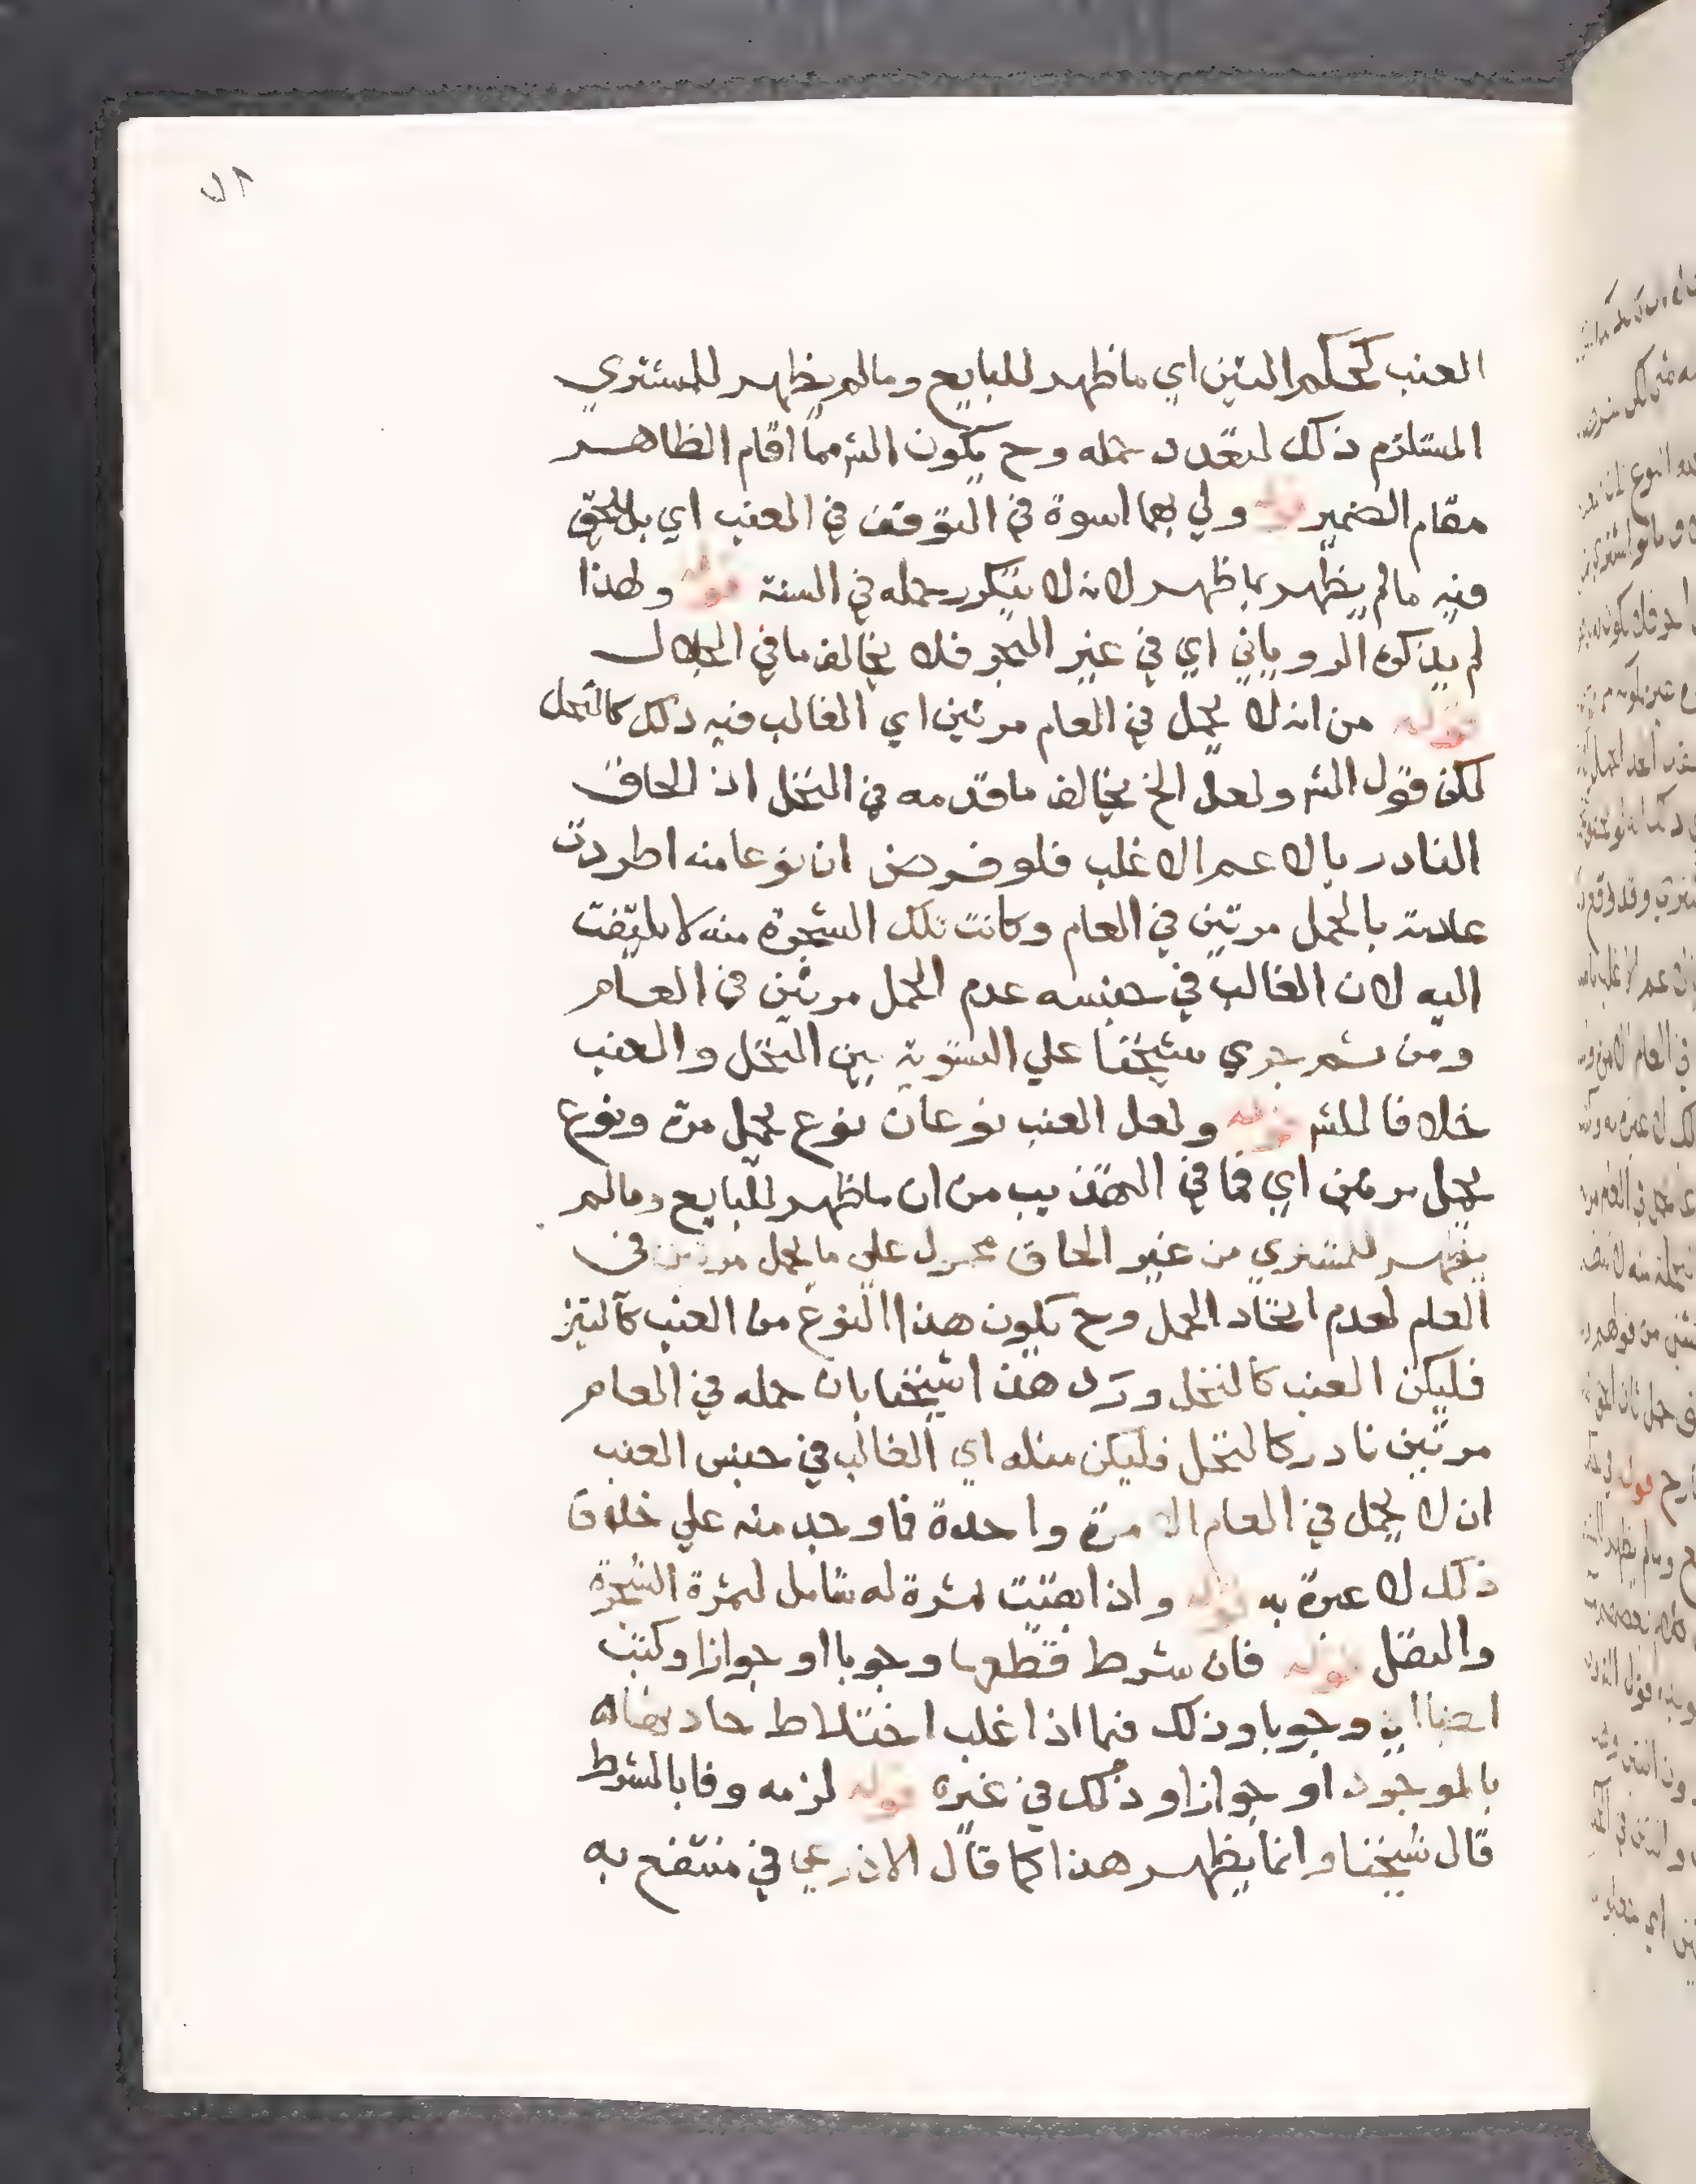 العنب كحكم التين اي ما ظهر للبايع وما لم يظهر للمشتري
المستلزم ذلك لتعدد حمله وح يكون الشر مما اقام الظاهر
مقام الضمير قوله ولي بهما اسوة في التوقف في العنب اي بل يلحق
فيه ما لم يظهر بما ظهر لانه لا يتكرر حمله في السنة قوله ولهذا
لم يذكره الروياني اي في غير البحر فلا يخالف ما في الجلال
قوله من انه لا يحمل في العام مرتين اي الغالب فيه ذلك كالنخل
لكن قول الشر ولعل الخ يخالف ما قدمه في النخل اذ الحاق
النادر بالاعم الاغلب فلو فرض ان نوعا منه اطردت
عادته بالحمل مرتين في العام وكانت تلك الشجرة منه لا يلتفت
اليه لان الغالب في جنسه عدم الحمل مرتين في العام
ومن ثم جري شيخنا علي التسوية بين النخل والعنب
خلافا للشر قوله ولعل العنب نوعان نوع يحمل مرة ونوع
يحمل مرتين اي فما في التهذيب من ان ما ظهر للبايع وما لم
يظهر للمشتري من غير الحاق محمول على ما يحمل مرتين في
العام لعدم اتحاد الحمل وح يكون هذا النوع من العنب كالتين
فليكن العنب كالنخل ورد هذا شيخنا بان حمله في العام
مرتين نادر كالنخل فليكن مثله اي الغالب في جنس العنب
ان لا يحمل في العام الا مرة واحدة فما وجد منه علي خلاف
ذلك لا عبرة به قوله واذا بقيت ثمرة له شامل لثمرة الشجرة
والبقل قوله فان شرط قطعها وجوبا او جوازا وكتب
ايضا اي وجوبا وذلك فيما اذا غلب اختلاط حادثها
بالموجود او جوازا وذلك في غيره قوله لزمه وفا بالشرط
قال شيخنا وانما يظهر هذا كما قال الاذرعي في منتفع به